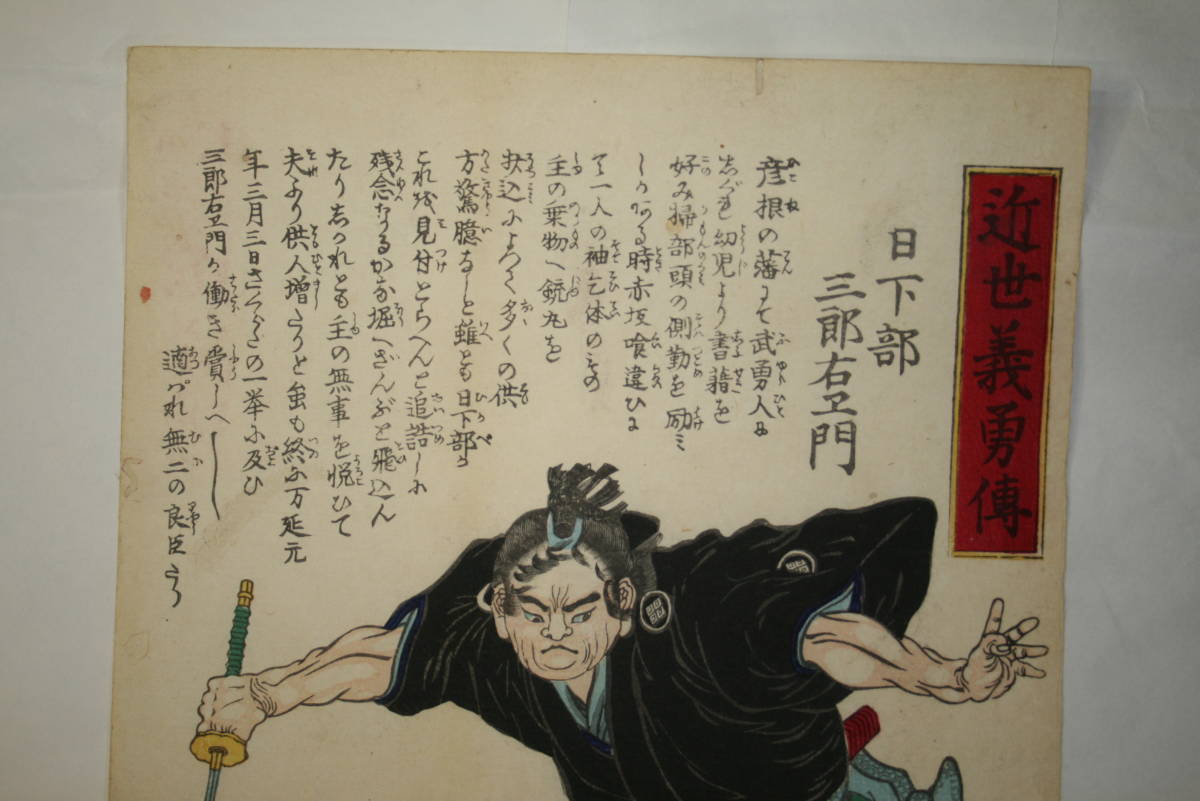 近世義勇傳
日下部
三郎右ヱ門
彦根の藩にて武勇人に
すぐれ幼児より書籍を
好み掃部頭の側勤を励ミ
しかある時赤坂喰違ひに
て一人の袖乞体のもの
主の乗物へ銃丸を
打込によつて多くの供
方驚臆なしと雖とも日下部が
これを見付とらへんと追詰しに
残念なるかな堀へざんぶと飛込ん
たりしかれとも主の無事を悦ひて
夫より供人増たりと虽も終に万延元
年三月三日さくらだの一挙に及ひ
三郎右ヱ門が働き賞しへし
適れ無二の良臣たり